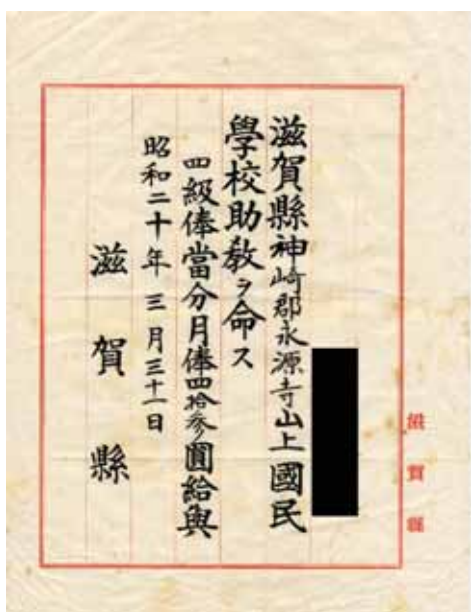 滋賀縣神崎郡永源寺山上國民
學校助教ヲ命ス
四級俸當分月俸四拾参圓給與
昭和二十年三月三十一日
滋賀縣
滋賀縣